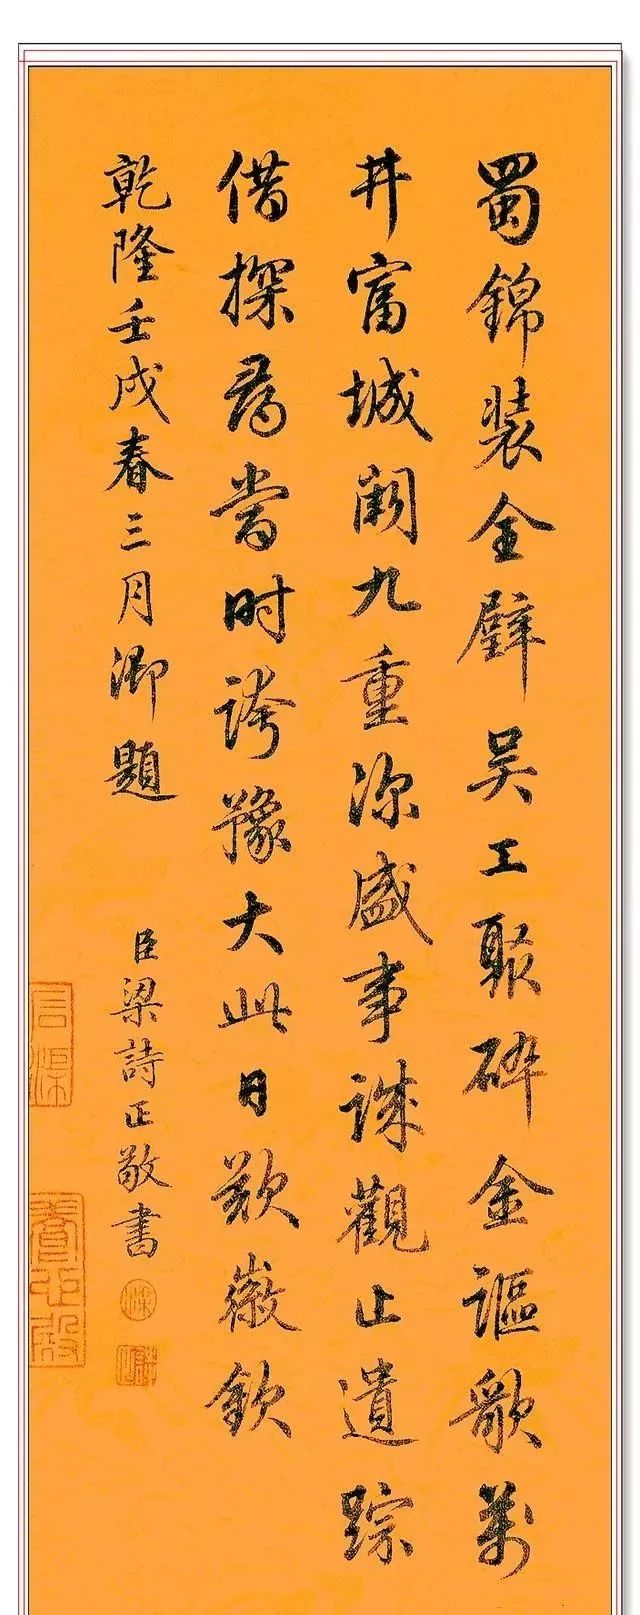 蜀錦装全璧吴工聚碎金謳歌萬
井富城闕九重深盛事誠觀止遺踪
借探尋當时誇豫大此日歎徽欽
乾隆壬戌春三月御題
臣梁詩正敬書